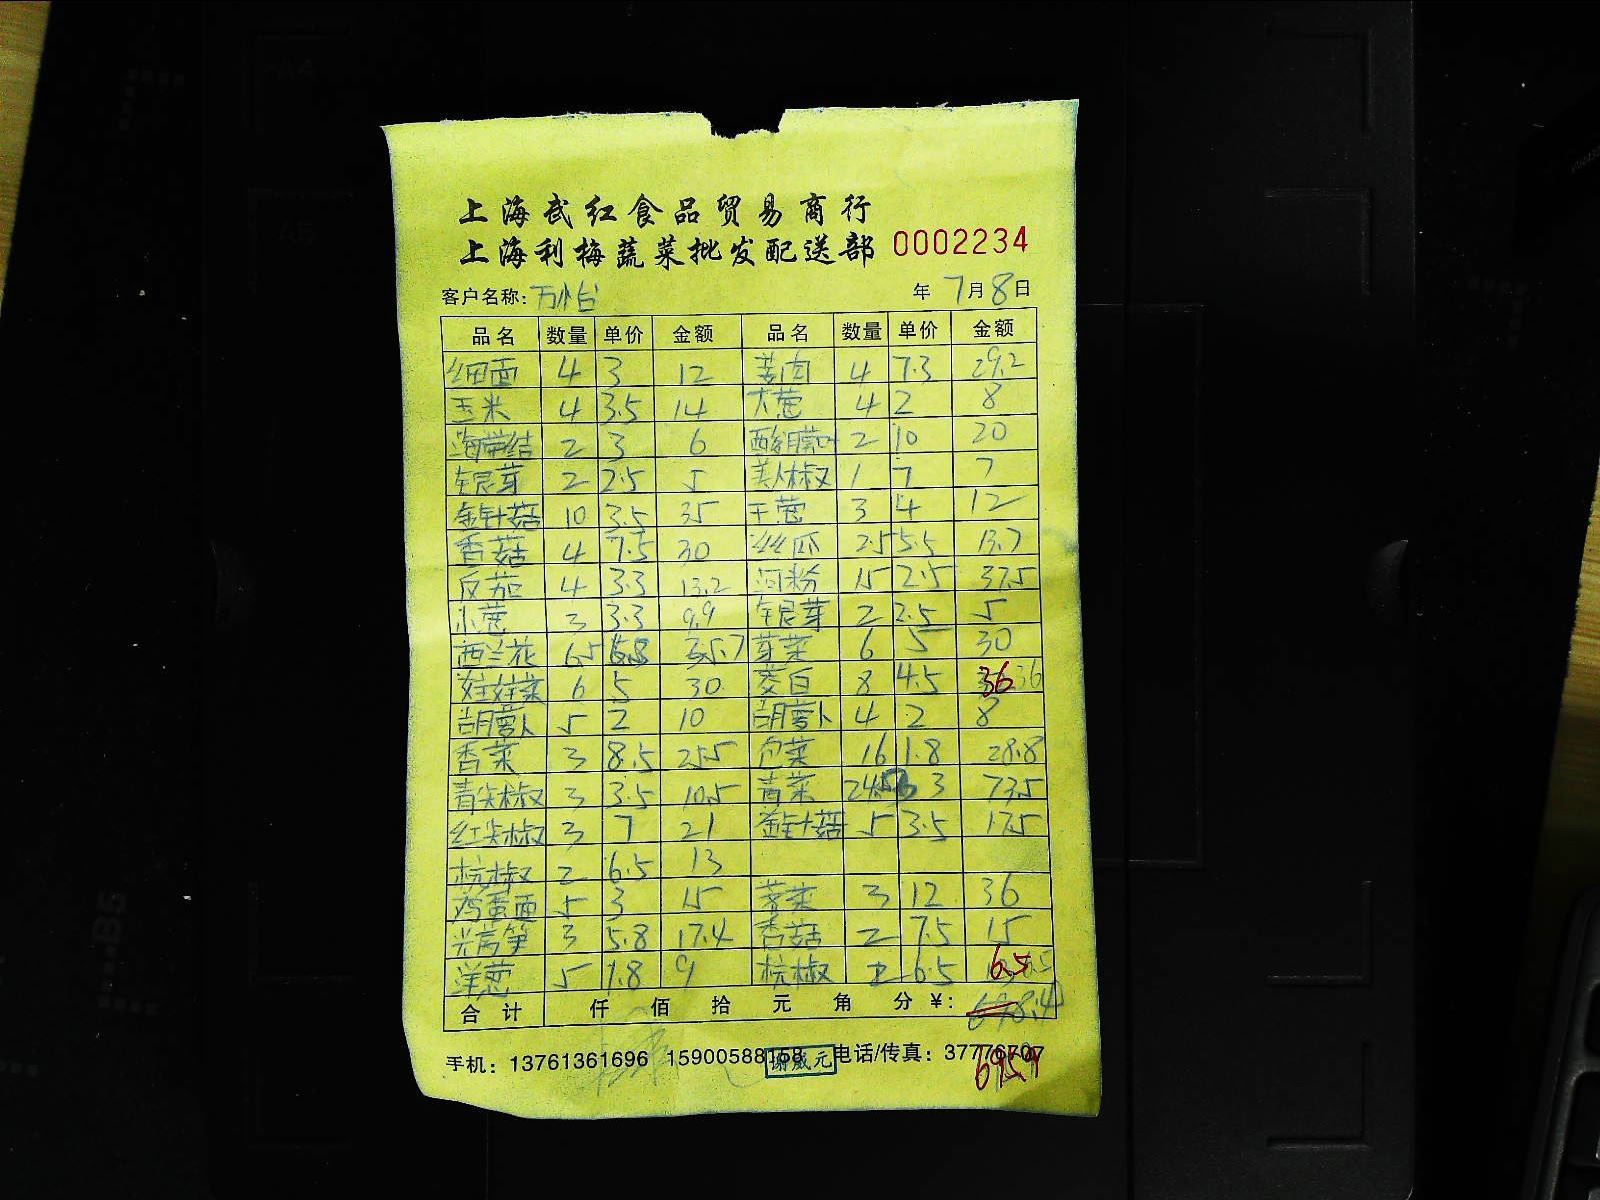 上海武红食品贸易商行
上海利梅蔬菜批发配送部 0002234
客户名称: 万怡 年 7月8日
品名 数量 单价 金额 品名 数量 单价 金额
细面 4 3 12 姜肉 4 7.3 29.2
玉米 4 3.5 14 大葱 4 2 8
海带结 2 3 6 酸 2 10 20
银芽 2 2.5 5 美人椒 1 7 7
金针菇 10 3.5 35 干葱 3 4 12
香菇 4 7.5 30 丝瓜 2.5 5.5 13.7
反茄 4 3.3 13.2 河粉 15 2.5 37.5
小葱 3 3.3 9.9 银芽 2 2.5 5
西兰花 6.5 35.7 芽菜 6 5 30
娃娃菜 6 5 30 茭白 8 4.5 36 36
胡萝卜 5 2 10 胡萝卜 4 2 8
香菜 3 8.5 25.5 包菜 16 1.8 28.8
青尖椒 3 3.5 10.5 青菜 24.5 3 73.5
红尖椒 3 7 21 金针菇 5 3.5 17.5
杭椒 2 6.5 13
鸡蛋面 5 3 15 3 12 36
光莴笋 3 5.8 17.4 香菇 2 7.5 15
洋葱 5 1.8 9 杭椒 6.5 6.5
合计 仟 佰 拾 元 角 分 ¥: 698.4
手机: 13761361696 15900588168 谢威元 电话/传真: 37776707